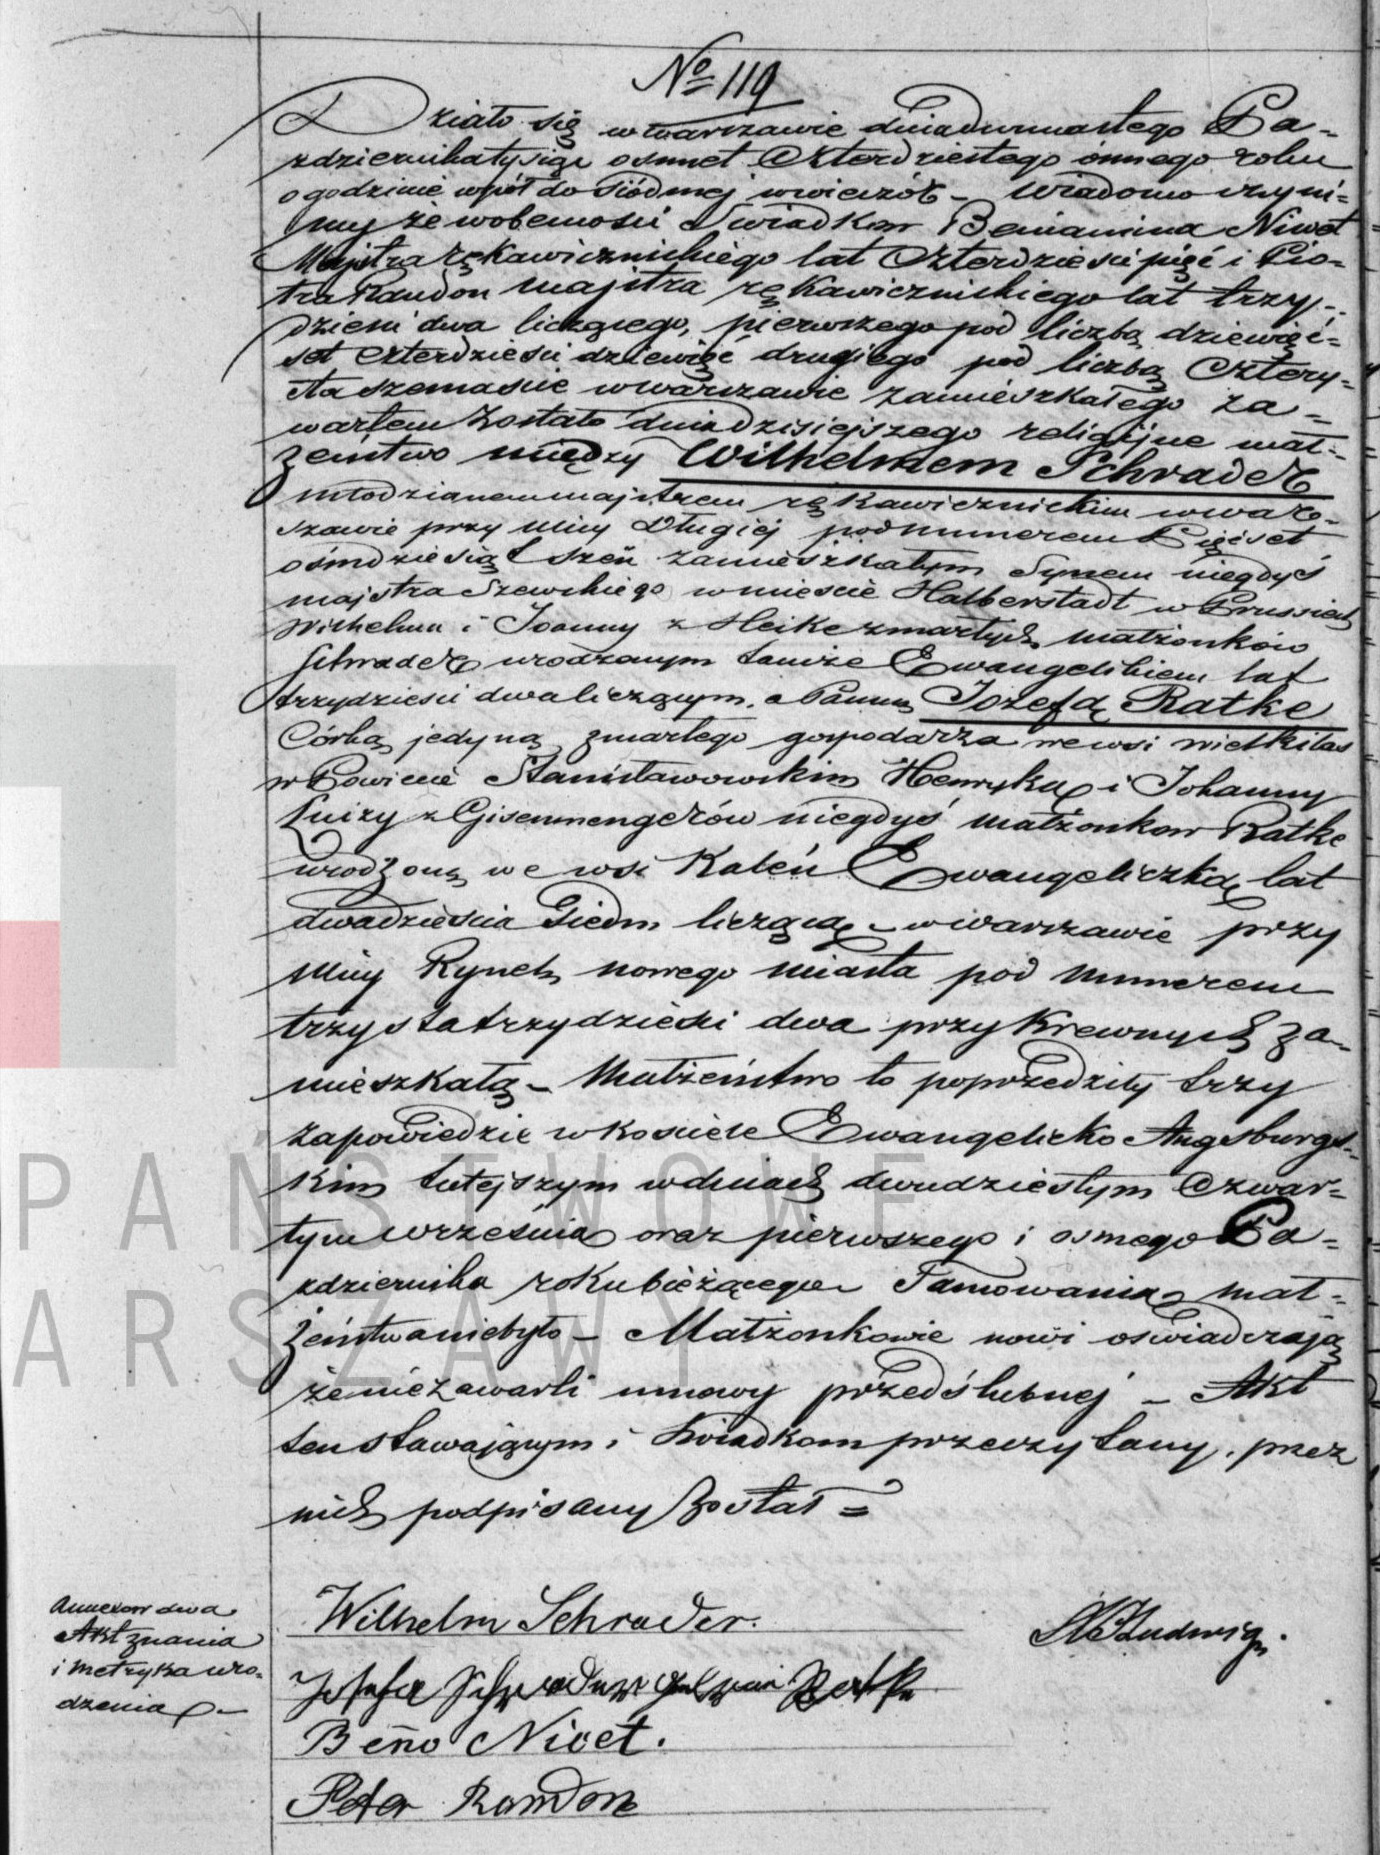 No 119
Działo się w Warszawie dnia dwunastego Pa-
zdziernika tysiąc osmset czterdziestego osmego roku
o godzinie wpół do siódmej wwieczór – Wiadomo czyni-
my że wobecności Swiadkow Beniamina Nivet
Majstra rękawicznickiego lat czterdzieści pięć i Pio-
tra Randon majstra rękawicznickiego lat trzy-
dzieści dwa liczącego, pierwszego pod liczbą dziewięć-
set czterdzieści dziewięć drugiego pod liczbą cztery-
sta szesnaście wWarszawie zamieszkałego za-
wartem zostało dnia dzisiejszego religijne mał-
żeństwo między Wilhelmem Schrader
młodzianem majstrem rękawicznickim wWar-
szawie przy ulicy Długiej pod numerem Pięćset
ośmdziesiąt sześć zamieszkałym Synem niegdyś
majstra Szewckiego w mieście Halberstadt w Prussiech
Wilhelma i Joanny z Heike zmarłych małżonków
Schrader urodzonym tamże Ewangelikiem lat
trzydzieści dwa liczącym, a Panną Jozefą Ratke
Córką jedyną zmarłego gospodarza we wsi wielkilas
w Powiecie Stanisławowskim Henryka i Johanny
Luizy z Gisenmengerów niegdyś małżonkow Ratke
urodzoną we wsi Kaleń Ewangeliczką lat
dwadzieścia siedm liczącą – w Warszawie przy
ulicy Rynek nowego miasta pod numerem
trzysta trzydzieści dwa przy Krewnych za-
mieszkałą – Małżeństwo to poprzedziły trzy
zapowiedzie w kościele Ewangelicko Augsburgs-
kim tutejszym w dniach dwudziestym czwar-
tym września oraz pierwszego i osmego Pa-
zdziernika roku bieżącego Tamowania mał-
żeństwa niebyło – Małżonkowie nowi oswiadczają
że niezawarli umowy przedślubnej – Akt
ten stawającym i Swiadkom przeczytany, przez
nich podpisany został =
Wilhelm Schrader.
Josefa Schrader Ratke
Beño Nivet.
Peter Randon
Ludwig.
Annexow dwa
Akt znania
i metryka uro-
dzenia –
PAŃSTWOWE
ARSZAWY